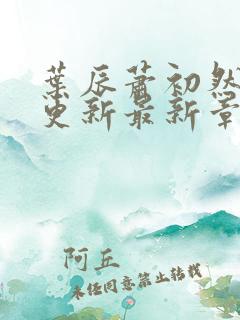 葉辰蕭初然
更新最新章
阿丘
未经同意禁止转载